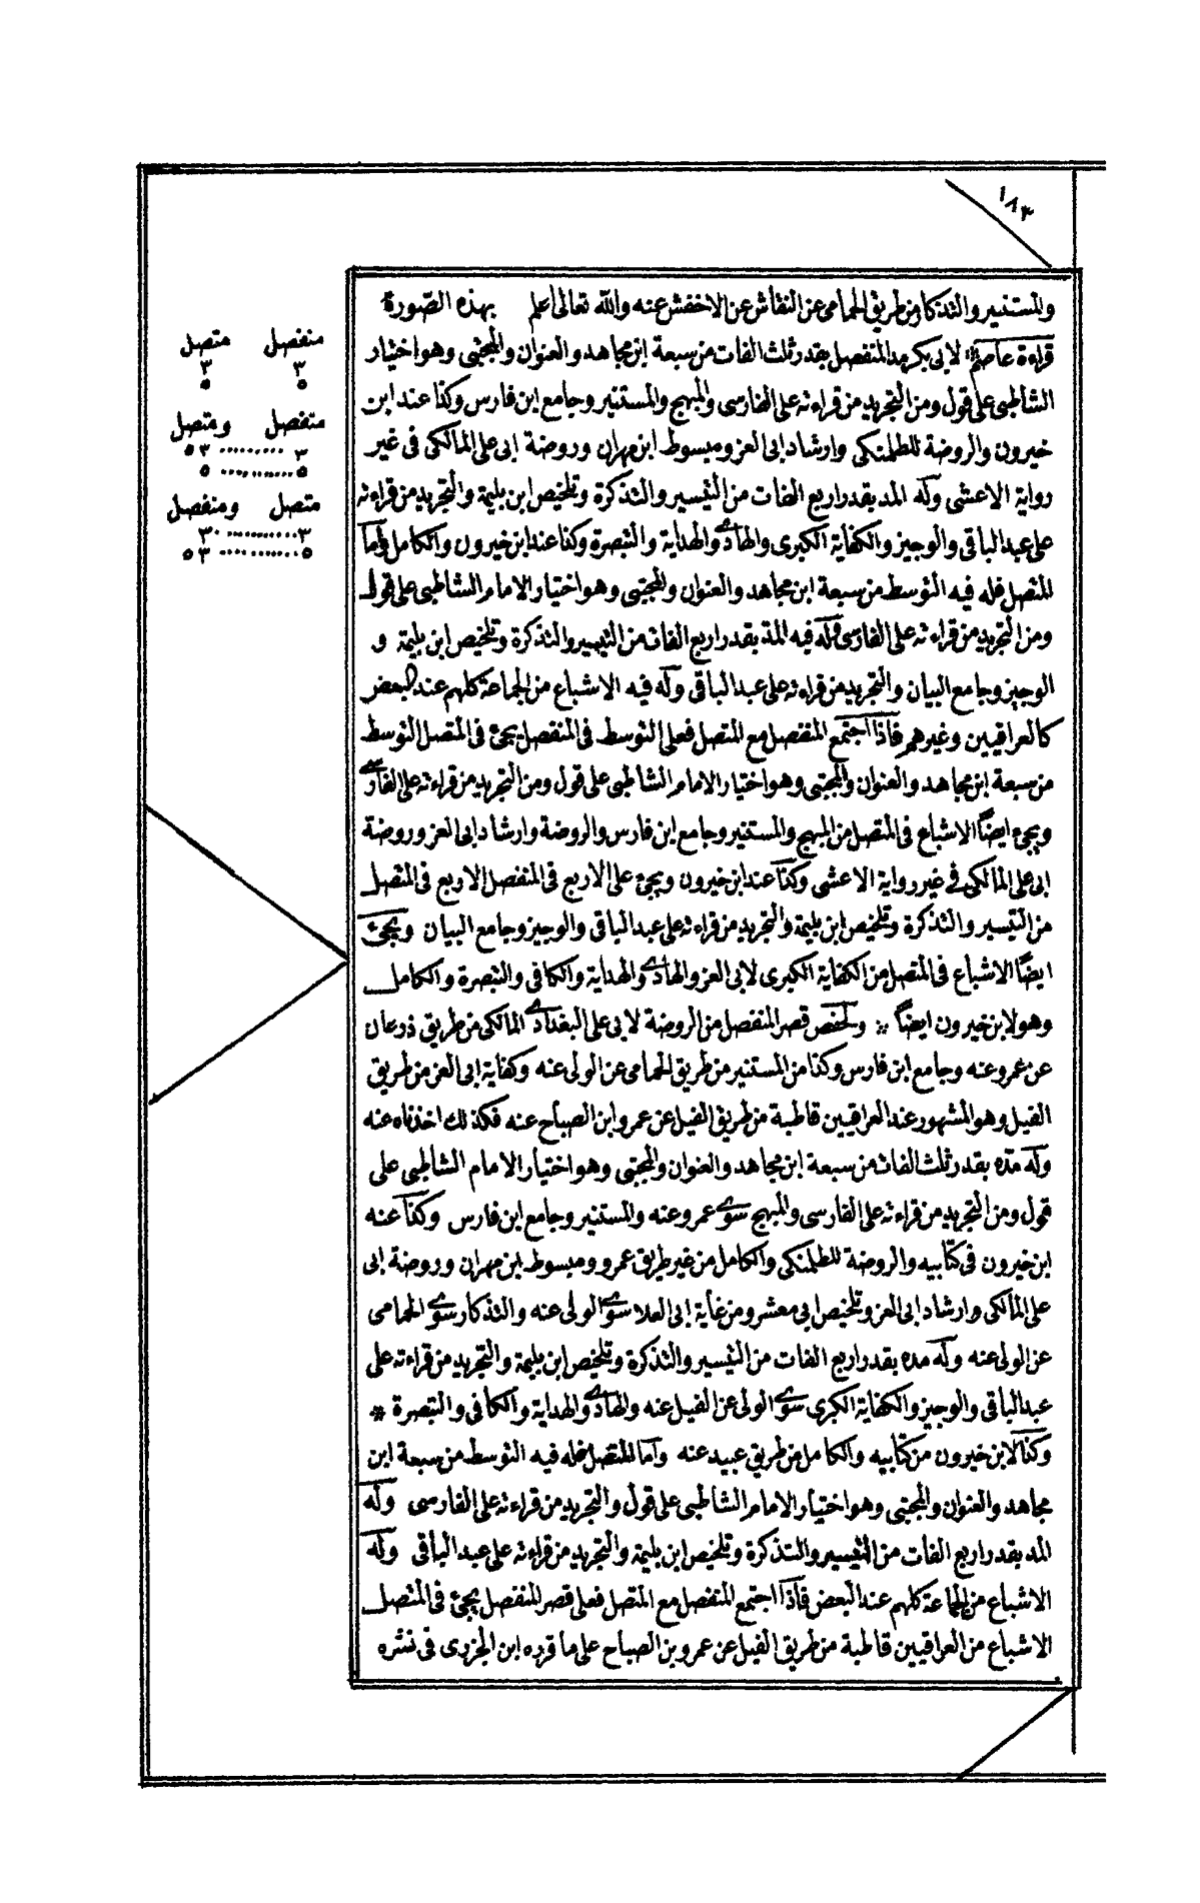 ١٨٣
والمستنير والتذكار من طريق الحمامى عن النقاش عن الاخفش عنه والله تعالى اعلم بهذه الصّورة
قراءة عاصم لابى بكر مد المنفصل بقدر ثلث الفات من سبعة ابن مجاهد والعنوان والمجتبى وهو اختيار
الشاطبى على قول ومن التجريد من قراءته على الفارسى والمبهج والمستنير وجامع ابن فارس وكذا عند ابن
خيرون والروضة للطلمنكى وارشاد ابى العز ومبسوط ابن مهران وروضة ابى على المالكى فى غير
رواية الاعشى وله المد بقدر اربع الفات من التيسير والتذكرة وتلخيص ابن بليمة والتجريد من قراءته
على عبد الباقى والوجيز والكفاية الكبرى والهادى والهداية والتبصرة وكذا عند ابن خيرون والكامل واما
المتصل فله فيه التوسط من سبعة ابن مجاهد والعنوان والمجتبى وهو اختيار الامام الشاطبى على قول
ومن التجريد من قراءته على الفارسى وله فيه المد بقدر اربع الفات من التيسير والتذكرة وتلخيص ابن بليمة و
الوجيز وجامع البيان والتجريد من قراءته على عبد الباقى وله فيه الاشباع من الجماعة كلهم عند البعض
كالعراقيين وغيرهم فاذا اجتمع المنفصل مع المتصل فعلى التوسط فى المنفصل يجئ فى المتصل التوسط
من سبعة ابن مجاهد والعنوان والمجتبى وهو اختيار الامام الشاطبى على قول ومن التجريد من قراءته على الفارسى
ويجئ ايضًا الاشباع فى المتصل من المبهج والمستنير وجامع ابن فارس والروضة وارشاد ابى العز وروضة
ابى على المالكى فى غير رواية الاعشى وكذا عند ابن خيرون ويجئ على الاربع فى المنفصل الاربع فى المتصل
من التيسير والتذكرة وتلخيص ابن بليمة والتجريد من قراءته على عبد الباقى والوجيز وجامع البيان ويجئ
ايضًا الاشباع فى المتصل من الكفاية الكبرى لابى العز والهادى والهداية والكافى والتبصرة والكامل
وهو لابن خيرون ايضًا * ولحفص قصر المنفصل من الروضة لابى على البغدادى المالكى من طريق ذرعان
عن عمرو عنه وجامع ابن فارس وكذا من المستنير من طريق الحمامى عن الولى عنه وكفاية ابى العز من طريق
الفيل وهو المشهور عند العراقيين قاطبة من طريق الفيل عن عمرو ابن الصباح عنه فكذلك اخذناه عنه
وله مدّه بقدر ثلث الفات من سبعة ابن مجاهد والعنوان والمجتبى وهو اختيار الامام الشاطبى على
قول ومن التجريد من قراءته على الفارسى والمبهج سوى عمرو عنه والمستنير وجامع ابن فارس وكذا عنه
ابن خيرون فى كتابيه والروضة للطلمنكى والكامل من غير طريق عمرو ومبسوط ابن مهران وروضة ابى
على المالكى وارشاد ابى العز وتلخيص ابى معشر ومن غاية ابى العلا سوى الولى عنه والتذكار سوى الحمامى
عن الولى عنه وله مده بقدر اربع الفات من التيسير والتذكرة وتلخيص ابن بليمة والتجريد من قراءته على
عبد الباقى والوجيز والكفاية الكبرى سوى الولى عن الفيل عنه والهادى والهداية والكافى والتبصرة *
وكذا لابن خيرون من كتابيه والكامل من طريق عبيد عنه واما المتصل فله فيه التوسط من سبعة ابن
مجاهد والعنوان والمجتبى وهو اختيار الامام الشاطبى على قول والتجريد من قراءته على الفارسى وله
المد بقدر اربع الفات من التيسير والتذكرة وتلخيص ابن بليمة والتجريد من قراءته على عبد الباقى وله
الاشباع من الجماعة كلهم عند البعض فاذا اجتمع المنفصل مع المتصل فعلى قصر المنفصل يجئ فى المتصل
الاشباع من العراقيين قاطبة من طريق الفيل عن عمرو بن الصباح على ما قرره ابن الجزرى فى نشره
منفصل متصل
٣ ٣
٥ ٥
منفصل ومتصل
٣ ......... ٣ ٥
٥ ........... ٥
متصل ومنفصل
٣ ........... ٣
٥ ........... ٣ ٥